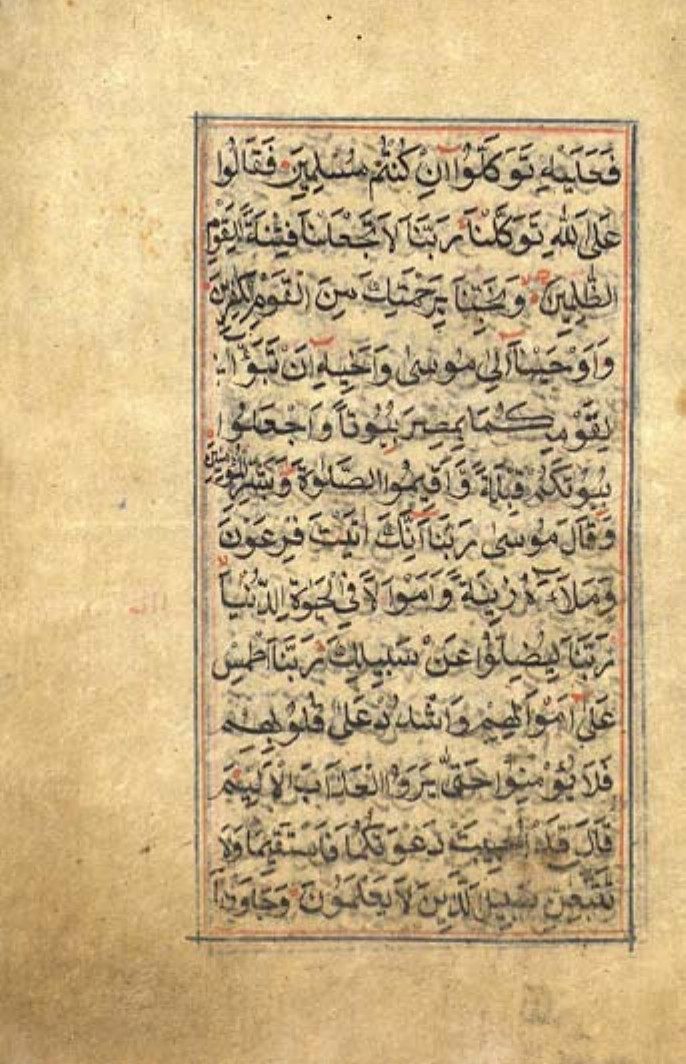 فَعَلَيْهِ تَوَكَّلُوا اِنْ كُنْتُمْ مُسْلِمِينَ فَقَالُوا
عَلَى اللّٰهِ تَوَكَّلْنَا رَبَّنَا لَا تَجْعَلْنَا فِتْنَةً لِلْقَوْمِ
الظّٰلِمِينَ وَنَجِّنَا بِرَحْمَتِكَ مِنَ الْقَوْمِ الْكٰفِرِينَ
وَاَوْحَيْنَا اِلٰى مُوسٰى وَاَخِيهِ اَنْ تَبَوَّاٰ
لِقَوْمِكُمَا بِمِصْرَ بُيُوتًا وَاجْعَلُوا
بُيُوتَكُمْ قِبْلَةً وَاَقِيمُوا الصَّلٰوةَ وَبَشِّرِ الْمُؤْمِنِينَ
وَقَالَ مُوسٰى رَبَّنَا اِنَّكَ اٰتَيْتَ فِرْعَوْنَ
وَمَلَاَهُ زِينَةً وَاَمْوَالًا فِي الْحَيٰوةِ الدُّنْيَا
رَبَّنَا لِيُضِلُّوا عَنْ سَبِيلِكَ رَبَّنَا اطْمِسْ
عَلٰى اَمْوَالِهِمْ وَاشْدُدْ عَلٰى قُلُوبِهِمْ
فَلَا يُؤْمِنُوا حَتّٰى يَرَوُا الْعَذَابَ الْاَلِيمَ
قَالَ قَدْ اُجِيبَتْ دَعْوَتُكُمَا فَاسْتَقِيمَا وَلَا
تَتَّبِعٰنِّ سَبِيلَ الَّذِينَ لَا يَعْلَمُونَ وَجَاوَزْنَا